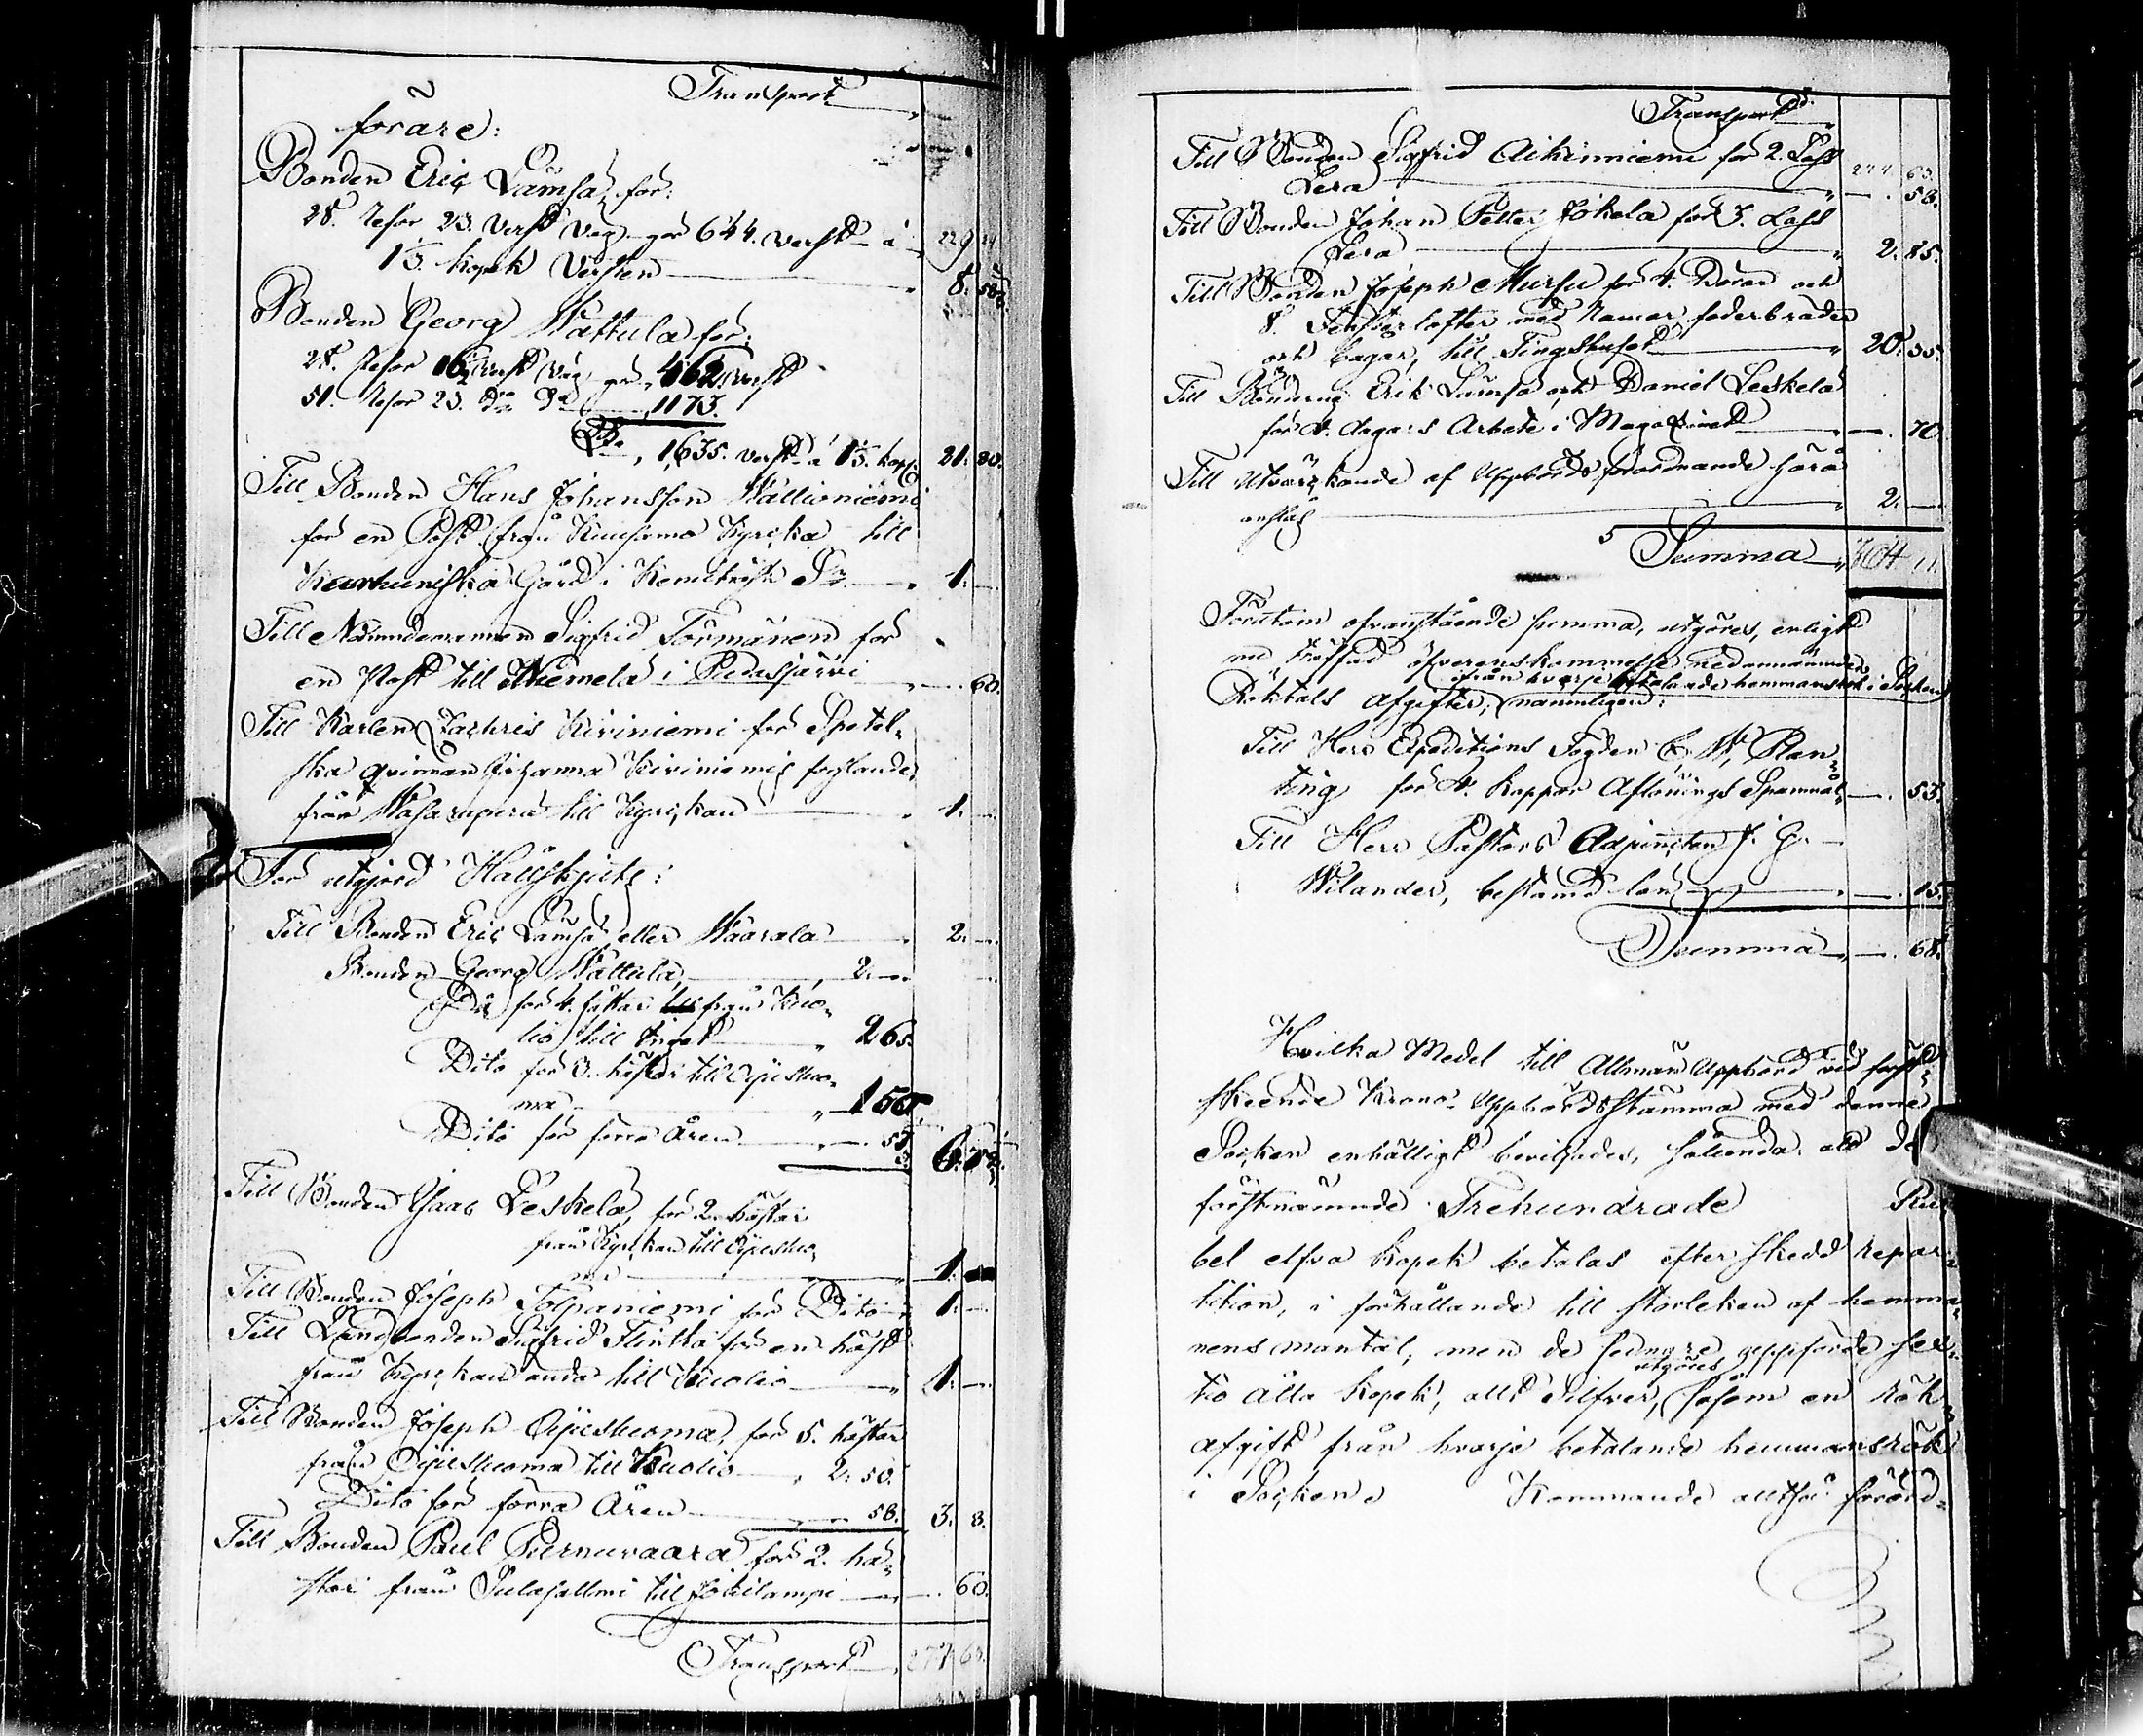 Transport
förare:
Bonden Eric Lämsä, för:
28. resor 23. verst väg gör 644. verst à
1⅓. kopek Versten 8. 58⅔.
Bonden Georg Mättälä för:
28. resor 16½ verst väg gör 462 verst
51. resor 23. d:o d:o 1173.
S:a 1,635. verst à 1⅓. kop: 21. 80.
Till Bonden Hans Johansson Kallioniemi
för en Post från Kuusamo Kyrcka till
Kurkuniska Gård i Kemiträsk S:n 1. —
Till Nämndemannen Sigfrid Törmänen för
en Post till Niemelä i Pudasjärvi — 60.
Till Karlen Zachris Kiviniemi för Spetel-
ska qvinnan Johanna Kiviniemis forslande
från Wasaraperä till Kyrckan 1. —
För utgjord Hållskjuts:
Till Bonden Eric Lämsä eller Määrälä 2. —
Bonden Georg Mättälä, 2. —
D:o för 4. hästar från Kuo-
lio till tinget 2 65.
Dito för 3. hästar till Äijiskuo-
ma 1 50.
Dito för förra Åren — 58.
Till Bonden Isaac Leskelä, för 2. hästar
från Kyrckan till Äijiskuo-
ma 1. —
Till Bonden Joseph Tolpaniemi för Dito 1. —
Till Landbonden Sigfrid Flinkka för en häst
från Kyrckan ända till Kuolio 1. —
Till Bonden Joseph Äijiskuoma, för 5. hästar
från Äijiskuoma till Kuolio 2. 50.
Dito för förra Åren — 58. 3. 8.
Till Bonden Paul Pernuvaara för 2. hä-
star från Sulasallmi till Jokilampi — 60.
Transport 277. 63.
Transport
Till Bonden Sigfrid Aikinniemi för 2. Lass
Lera 277. 63. — 58.
Till Bonden Johan Petter Jokela för 3. Lass
Lera 2. 85.
Till Bonden Joseph Mursu för 4. Dörar och
8. Fensterlufter med Ramar foderbräder
och bågar, till Tingshuset 20. 35.
Till Bönderne Erik Lämsä och Daniel Leskelä
för 2. dagars Arbete i Magazinet — 70
Till utvärckande af Uppbördsförordnande härå
anslås 2. —
Summa 304 11.
Förutom ofvanstående summa, utgöres, enligt
nu träffad öfverenskommelse nedannämnde
från hvarje betalande hemmansrök i Socknen
Röktals Afgifter, nammligen:
Till Herr Expeditions Fogden C. W. Plan-
ting för 2. kappar Aflönings Spannmål — 53.
Till Herr Pastors Adjuncten J. G.
Wilander, bestämd lön — 15.
Summa — 68.
Hvilka Medel till Allmän Uppbörd vid först-
skeende Krono-Uppbördsstämma med denne
Socken enhälligt beviljades, sålunda att de
förstnämnde Trehundrade Ru
bel elfva kopek betalas efter skedd repar-
tition, i förhållande till storleken af hemma-
nens mantal, men de sednare uppförde sex-
utgöres
tio åtta kopek, allt Silfver, såsom en rök-
afgift från hvarje betalande hemmansrök
i Socken. Kommande alltså förord-